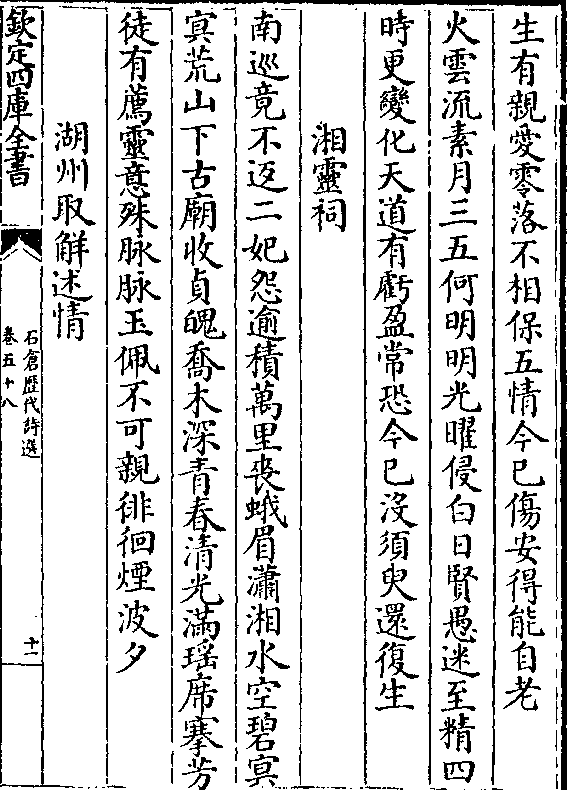 生有親愛零落不相保五情今已傷安得能自老
火雲流素月三五何明明光曜侵白日賢愚迷至精四
時更變化天道有虧盈常恐今已沒須臾還復生
湘靈祠
南巡竟不返二妃怨逾積萬里喪蛾眉瀟湘水空碧冥
冥荒山下古廟收貞魄喬木深青春清光滿瑶席搴芳
徒有薦靈意殊脉脉玉佩不可親徘徊煙波夕
湖州取解述情
欽定四庫全書
石倉歷代詩選
卷五十八
十一